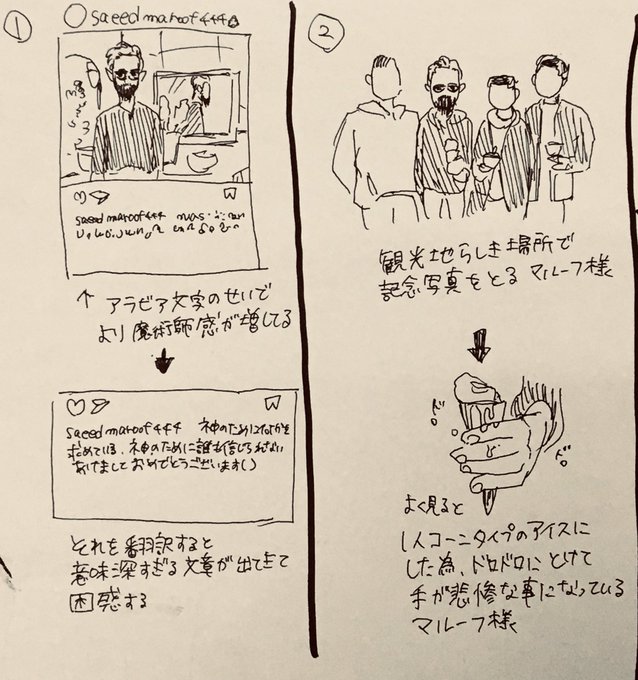 ①
saeed maroof444
saeed maroof444
↑ アラビア文字のせいで
より魔術師感が増してる
saeed maroof444 神のために
求めている、神のために誰も信じられない
あけましておめでとうございます()
それを翻訳すると
意味深すぎる文章が出てきて
困惑する
②
観光地らしき場所で
記念写真をとるマルーフ様
ドロ
ドロ
よく見ると
1人コーンタイプのアイスに
した為、ドロドロにとけて
手が悲惨な事になっている
マルーフ様